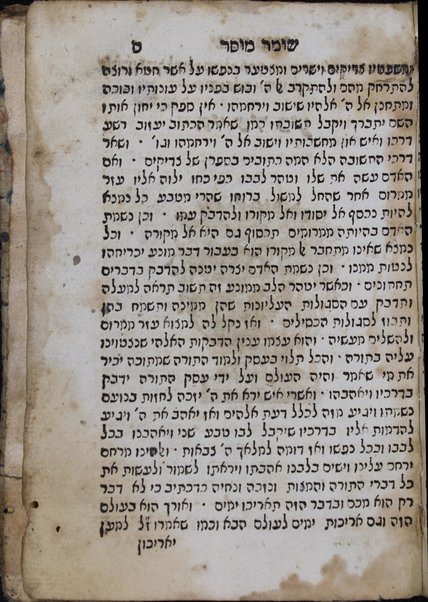 שומר מוסר ס
ומשפטיו צדיקים וישרים ומצטער בנפשו על אשר חטא ורוצה
להתרחק מהם ולהתקרב אל ה' ובוש בפניו על עונותיו ובוכה
ומתחנן אל ה' אלהיו שישוב וירחמהו · אין ספק כי יחון אותו
השם יתברך ויקבל תשובתו כמו שאמר הכתוב יעזוב רשע
דרכו ואיש און מחשבותיו וישוב אל ה' וירחמהו וגו' · ושאר
דרכי התשובה הלא המה כתובים בספרן של צדיקים · ואם
האדם עשה את שלו וטהר לבבו כפי כחו ילוה אליו עזר
ממרום אחר שהחל למשול ברוחו שהרי מטבע כל נמצא
להיות נכסף אל יסודו ואל מקורו ולהדבק עמו · וכן נשמת
האדם בהיותה ממרומים תכסוף גם היא אל מקורה · וכל
נמצא שאינו מתחבר אל מקורו הוא בעבור דבר מונע יכריחהו
לנטות ממנו · וכן נשמת האדם יצרה יטנה להדבק בדברים
תחתונים · וכאשר יטהר הלב ממונע זה תשוב תראה למעלה
ותדבק עם הסגולות העליונות שהן ממינה ותשמח בהן
ותבוז לסגולות הכסילים · ואז נקל לה למצוא עזר ממרום
ולהשלים מעשיה · והוא עצמו ענין הדבקות האלהי שנצטוינו
עליה בתורה · והכל תלוי בעסק ולמוד התורה שמתוכה יכיר
את מי שאמר והיה העולם ועל ידי עסק התורה ידבק
בדרכיו ויאהבה · ואשרי איש ירא את ה' יזכה לחזות בנועם
נשמתו ויגיע מזה לכלל דעת אלהים ואז יאהב את ה' ויגיע
להדמות אליו בדרכיו שיקבל לבו טבע שני ויאהבנו בכל
לבבו ובכל נפשו ואז דומה למלאך ה' צבאות · אלהינו מרחם
ירחם עלינו וישים בלבנו אהבתו ויראתו לשמור ולעשות את
כל דברי התורה והמצות ונזכה ונחיה כדכתיב כי לא דבר
רק הוא מכם ובדבר הזה תאריכו ימים · ואורך הוא בעולם
הזה וגם אריכות ימים לעולם הבא וכמו שאמרו ז"ל למען
יאריכון